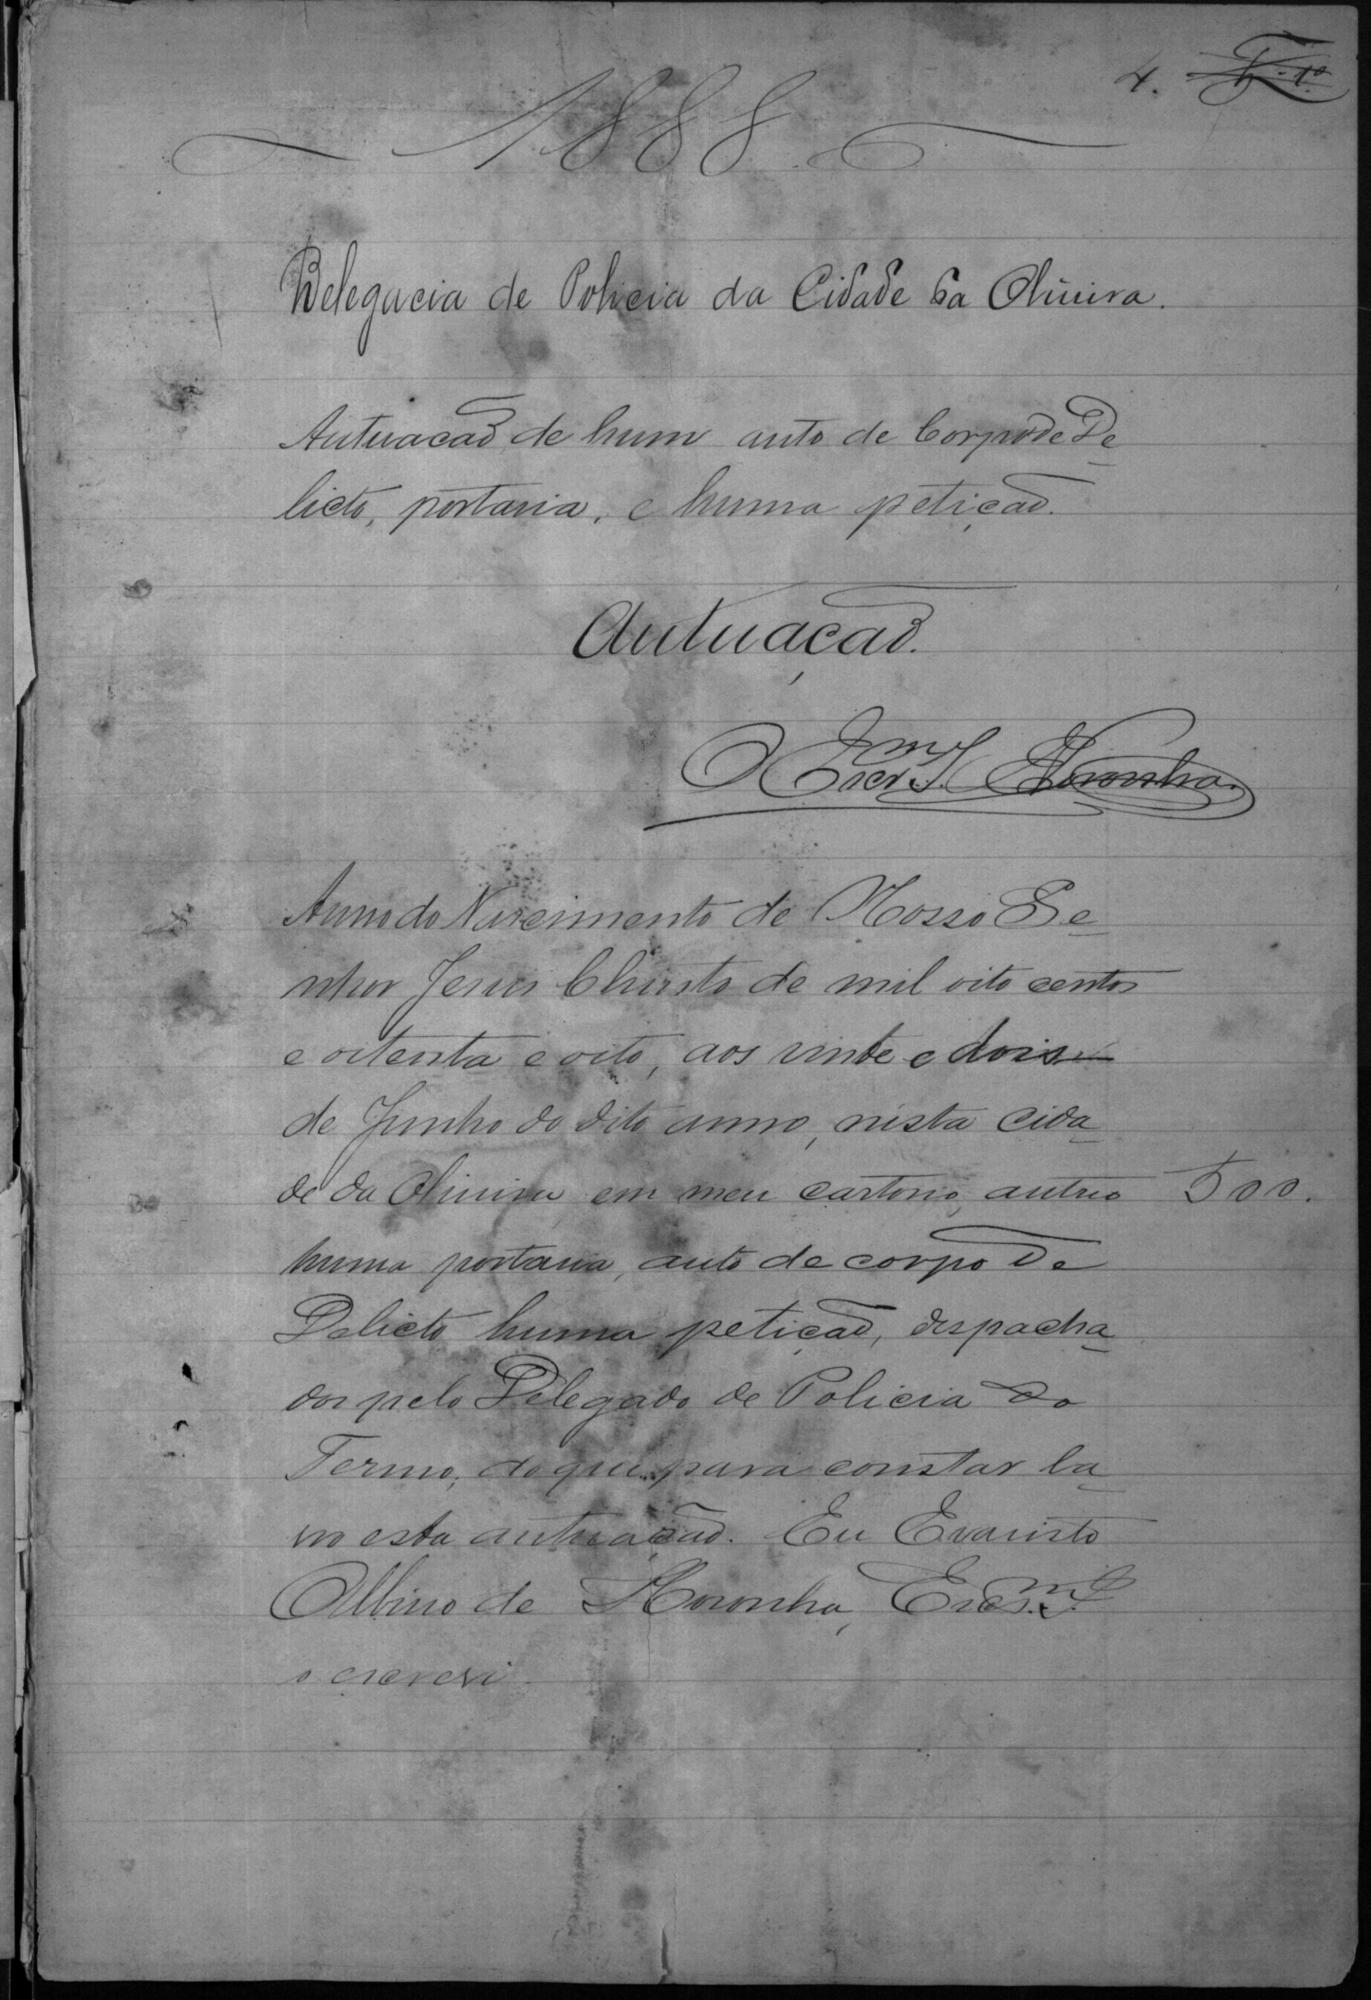 4.
1888
Delegacia de Policia da Cidade da Oliveira.
Autuacaõ de hum auto de Corpo de De
licto, portaria, e huma petiçaõ.
Autuaçaõ.
O Escr.m J. Noronha.
Anno do Nascimento de Nosso Se
nhor Jesus Christo de mil oito centos
e oitenta e oito, aos vinte e dois
de Junho do dito anno, nesta cida
de da Oliveira em meu cartorio, autuo 500.
huma portaria, auto de corpo de
Delicto huma petiçaõ, despacha
dos pelo Delegado de Policia do
Termo, do que para constar la
vro esta autuaçaõ. Eu Evaristo
Albino de Noronha,
o escrevi.